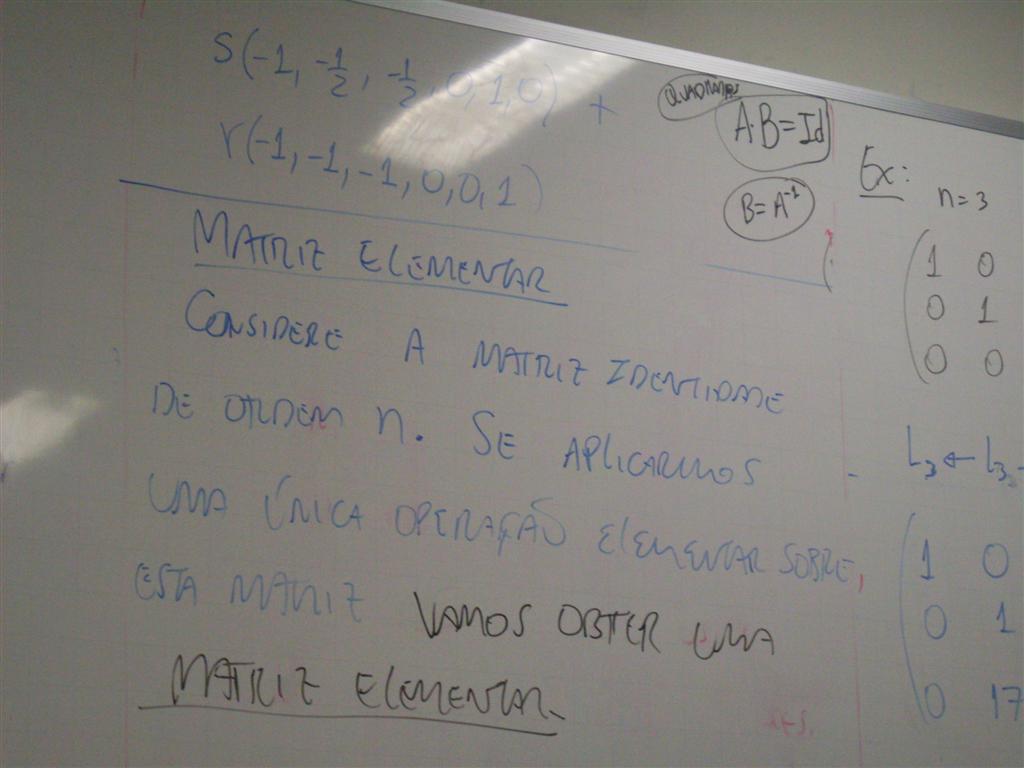 S(-1, -1/2, -1/2, 0, 1, 0) +
r(-1, -1, -1, 0, 0, 1)
MATRIZ ELEMENTAR
CONSIDERE A MATRIZ IDENTIDADE
DE ORDEM n. SE APLICARMOS
UMA ÚNICA OPERAÇÃO ELEMENTAR SOBRE
ESTA MATRIZ VAMOS OBTER UMA
MATRIZ ELEMENTAR.
QUADRADAS
A·B=Id
B=A⁻¹
Ex: n=3
1 0
0 1
0 0
L₃ ← L₃
1 0
0 1
0 17